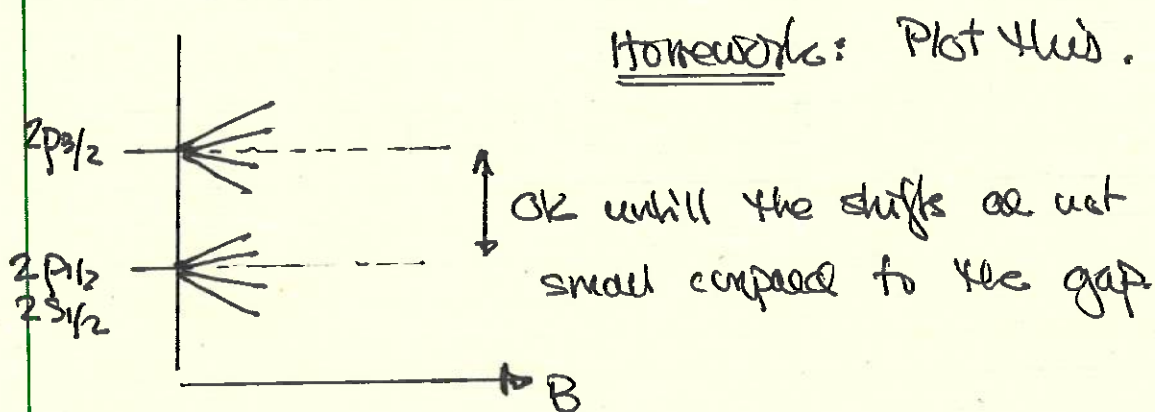 Homework: Plot this.
2p3/2
OK untill the shifts are not
2p1/2
small compared to the gap
2s1/2
B